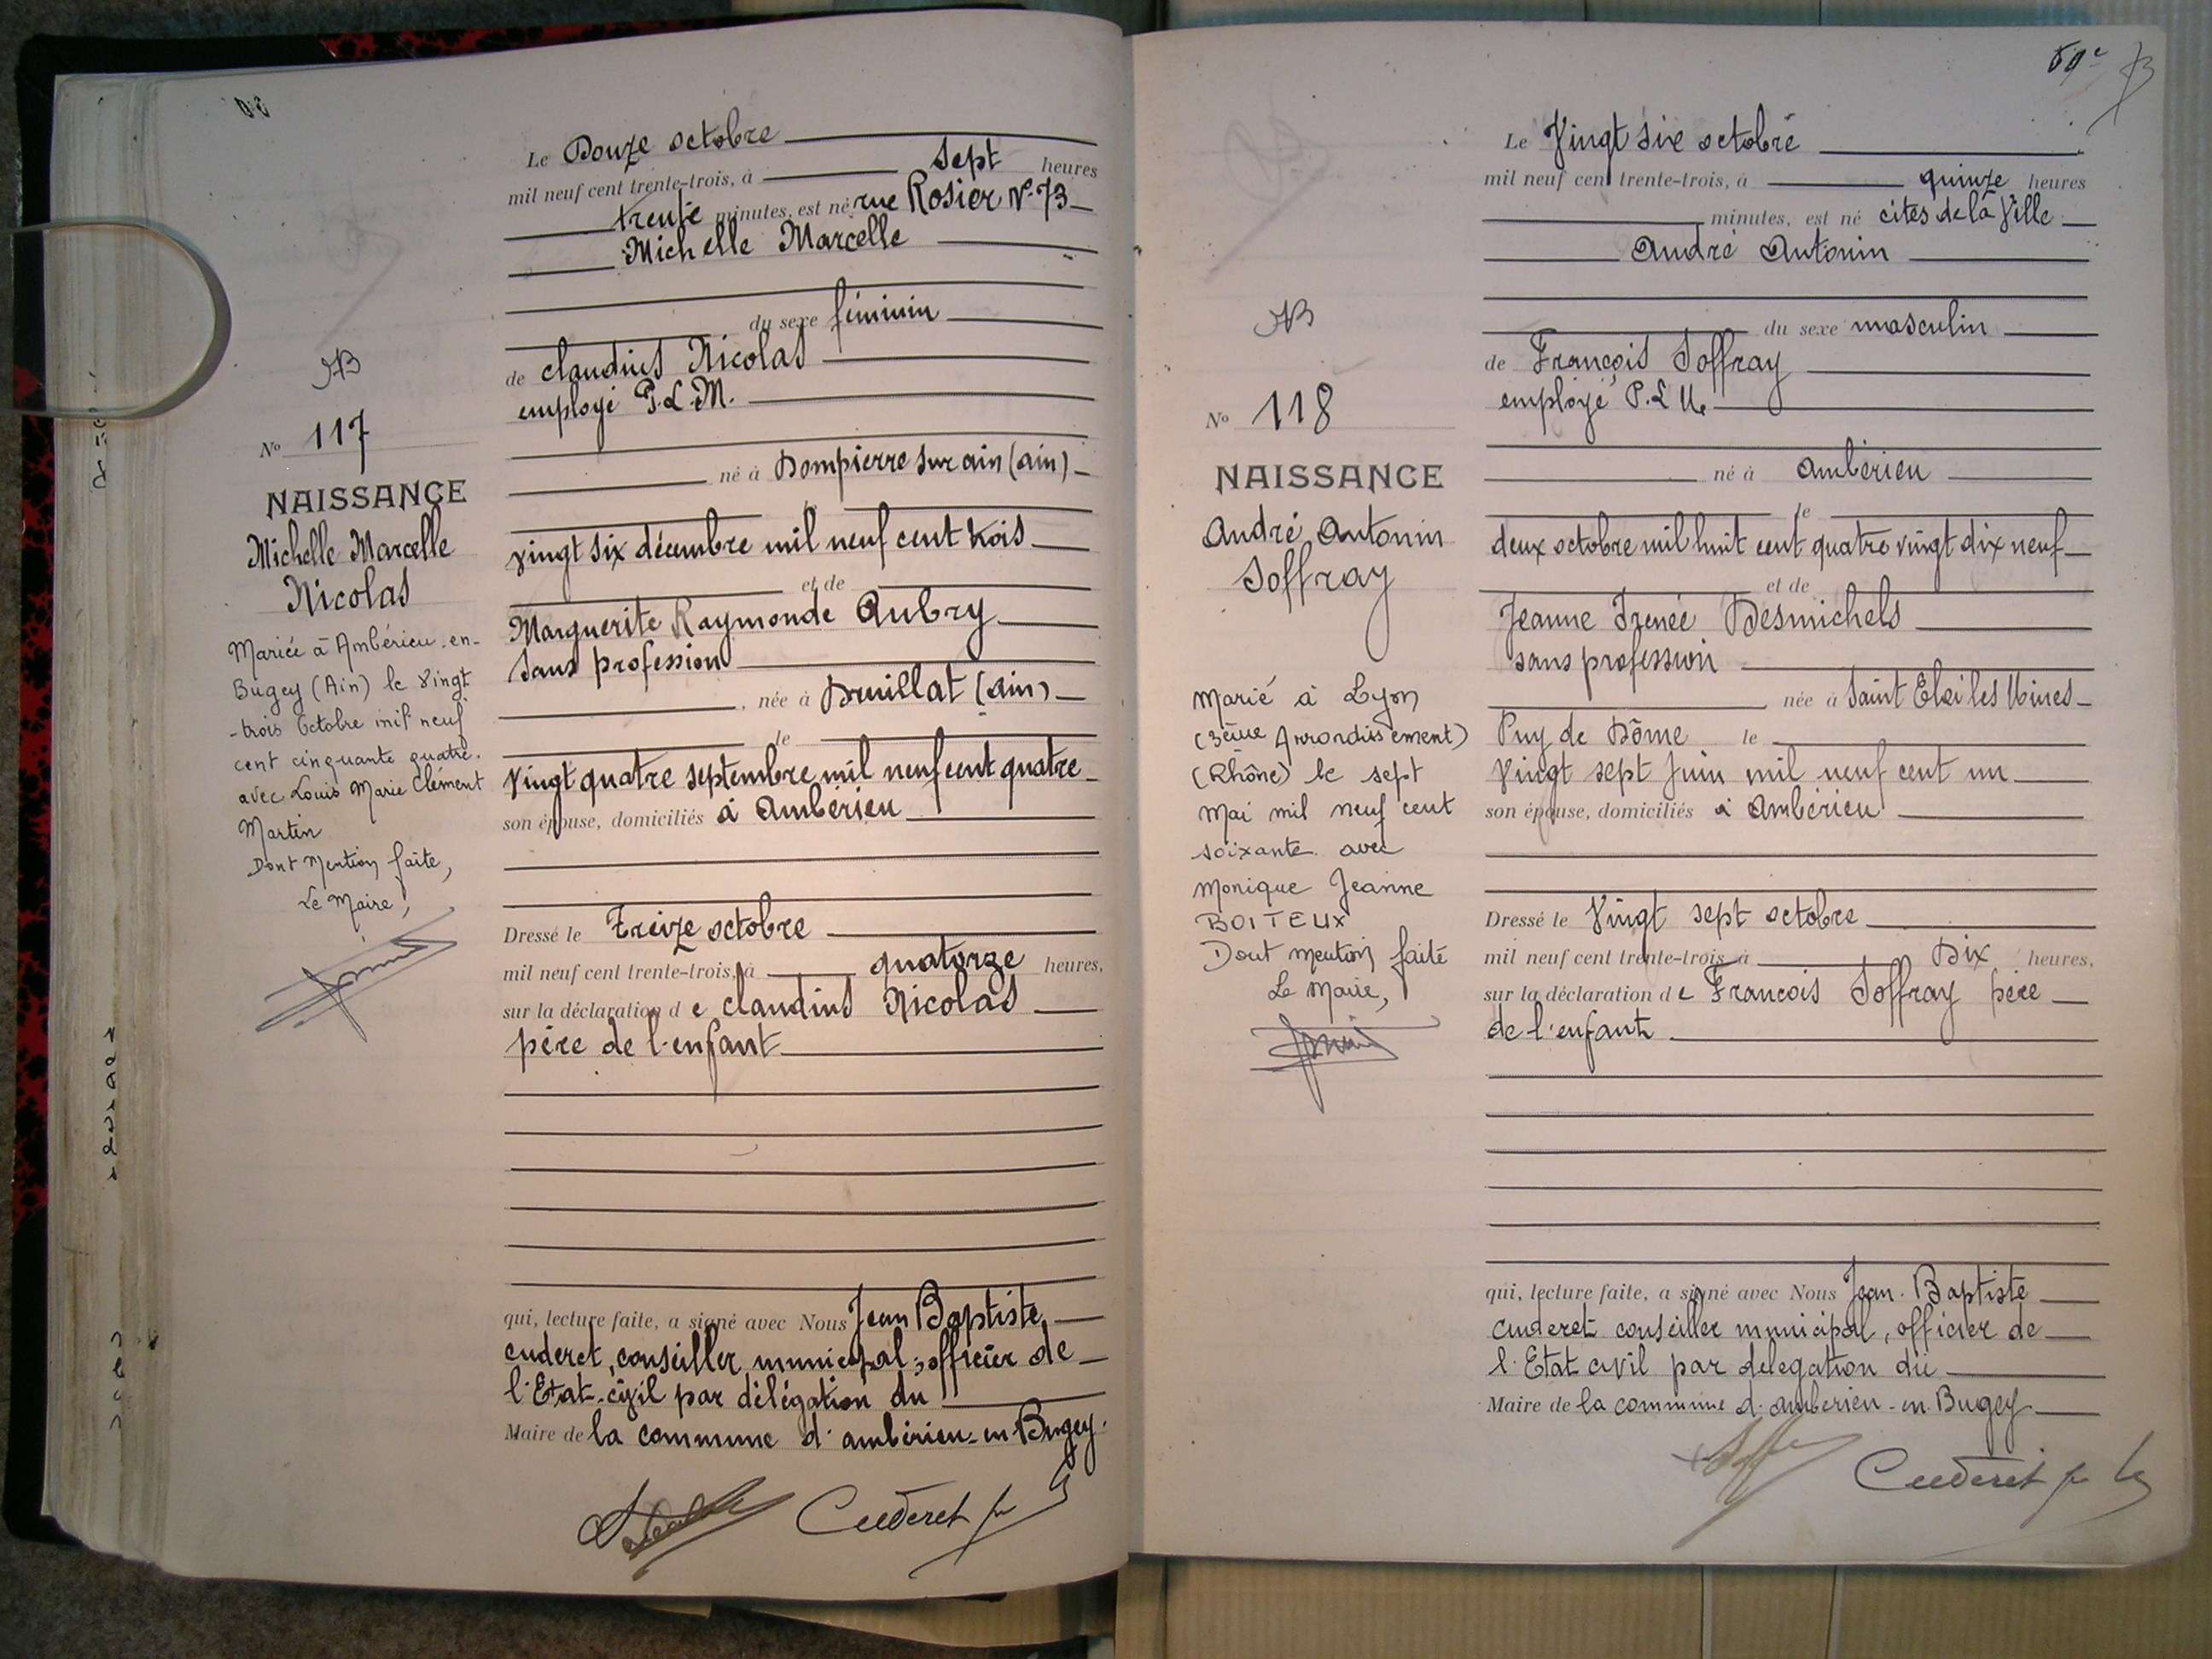 N° 117
NAISSANCE
Michelle Marcelle
Nicolas
Mariée à Ambérieu-en-
Bugey (Ain) le vingt
-trois Octobre mil neuf
cent cinquante quatre.
avec Louis Marie Clément
Martin
Dont Mention faite,
Le Maire,
Le Douze octobre
mil neuf cent trente-trois, à sept heures
trente minutes, est né rue Rosier N° 73
Michelle Marcelle
du sexe féminin
de Claudius Nicolas
employé P.L.M.
né à Dompierre sur ain (ain)
le
vingt six décembre mil neuf cent trois
et de
Marguerite Raymonde Aubry
sans profession
, née à Druillat (ain)
le
vingt quatre septembre mil neuf cent quatre
son épouse, domiciliés à Ambérieu
Dressé le Treize octobre
mil neuf cent trente-trois, à quatorze heures,
sur la déclaration de Claudius Nicolas
père de l'enfant
qui, lecture faite, a signé avec Nous Jean Baptiste
Cuderet, conseiller municipal, officier de
l'Etat-civil par délégation du
Maire de la commune d'ambérieu-en-Bugey.
Cuderet
N° 118
NAISSANCE
André Antonin
Soffray
Marié à Lyon
(3ème Arrondissement)
(Rhône) le sept
Mai mil neuf cent
soixante avec
Monique Jeanne
BOITEUX
Dont mention faite
Le Maire,
Le Vingt six octobre
mil neuf cent trente-trois, à quinze heures
minutes, est né cités de la Ville
André Antonin
du sexe masculin
de François Soffray
employé P.L.M.
né à Ambérieu
le
deux octobre mil huit cent quatre vingt dix neuf
et de
Jeanne Irénée Desmichels
sans profession
née à Saint Eloi les Mines
Puy de Dôme le
Vingt sept Juin mil neuf cent un
son épouse, domiciliés à Ambérieu
Dressé le Vingt sept octobre
mil neuf cent trente-trois, à Dix heures,
sur la déclaration de François Soffray père
de l'enfant
qui, lecture faite, a signé avec Nous Jean-Baptiste
Cuderet conseiller municipal, officier de
l'Etat civil par délégation du
Maire de la commune d'ambérieu-en-Bugey
Cuderet